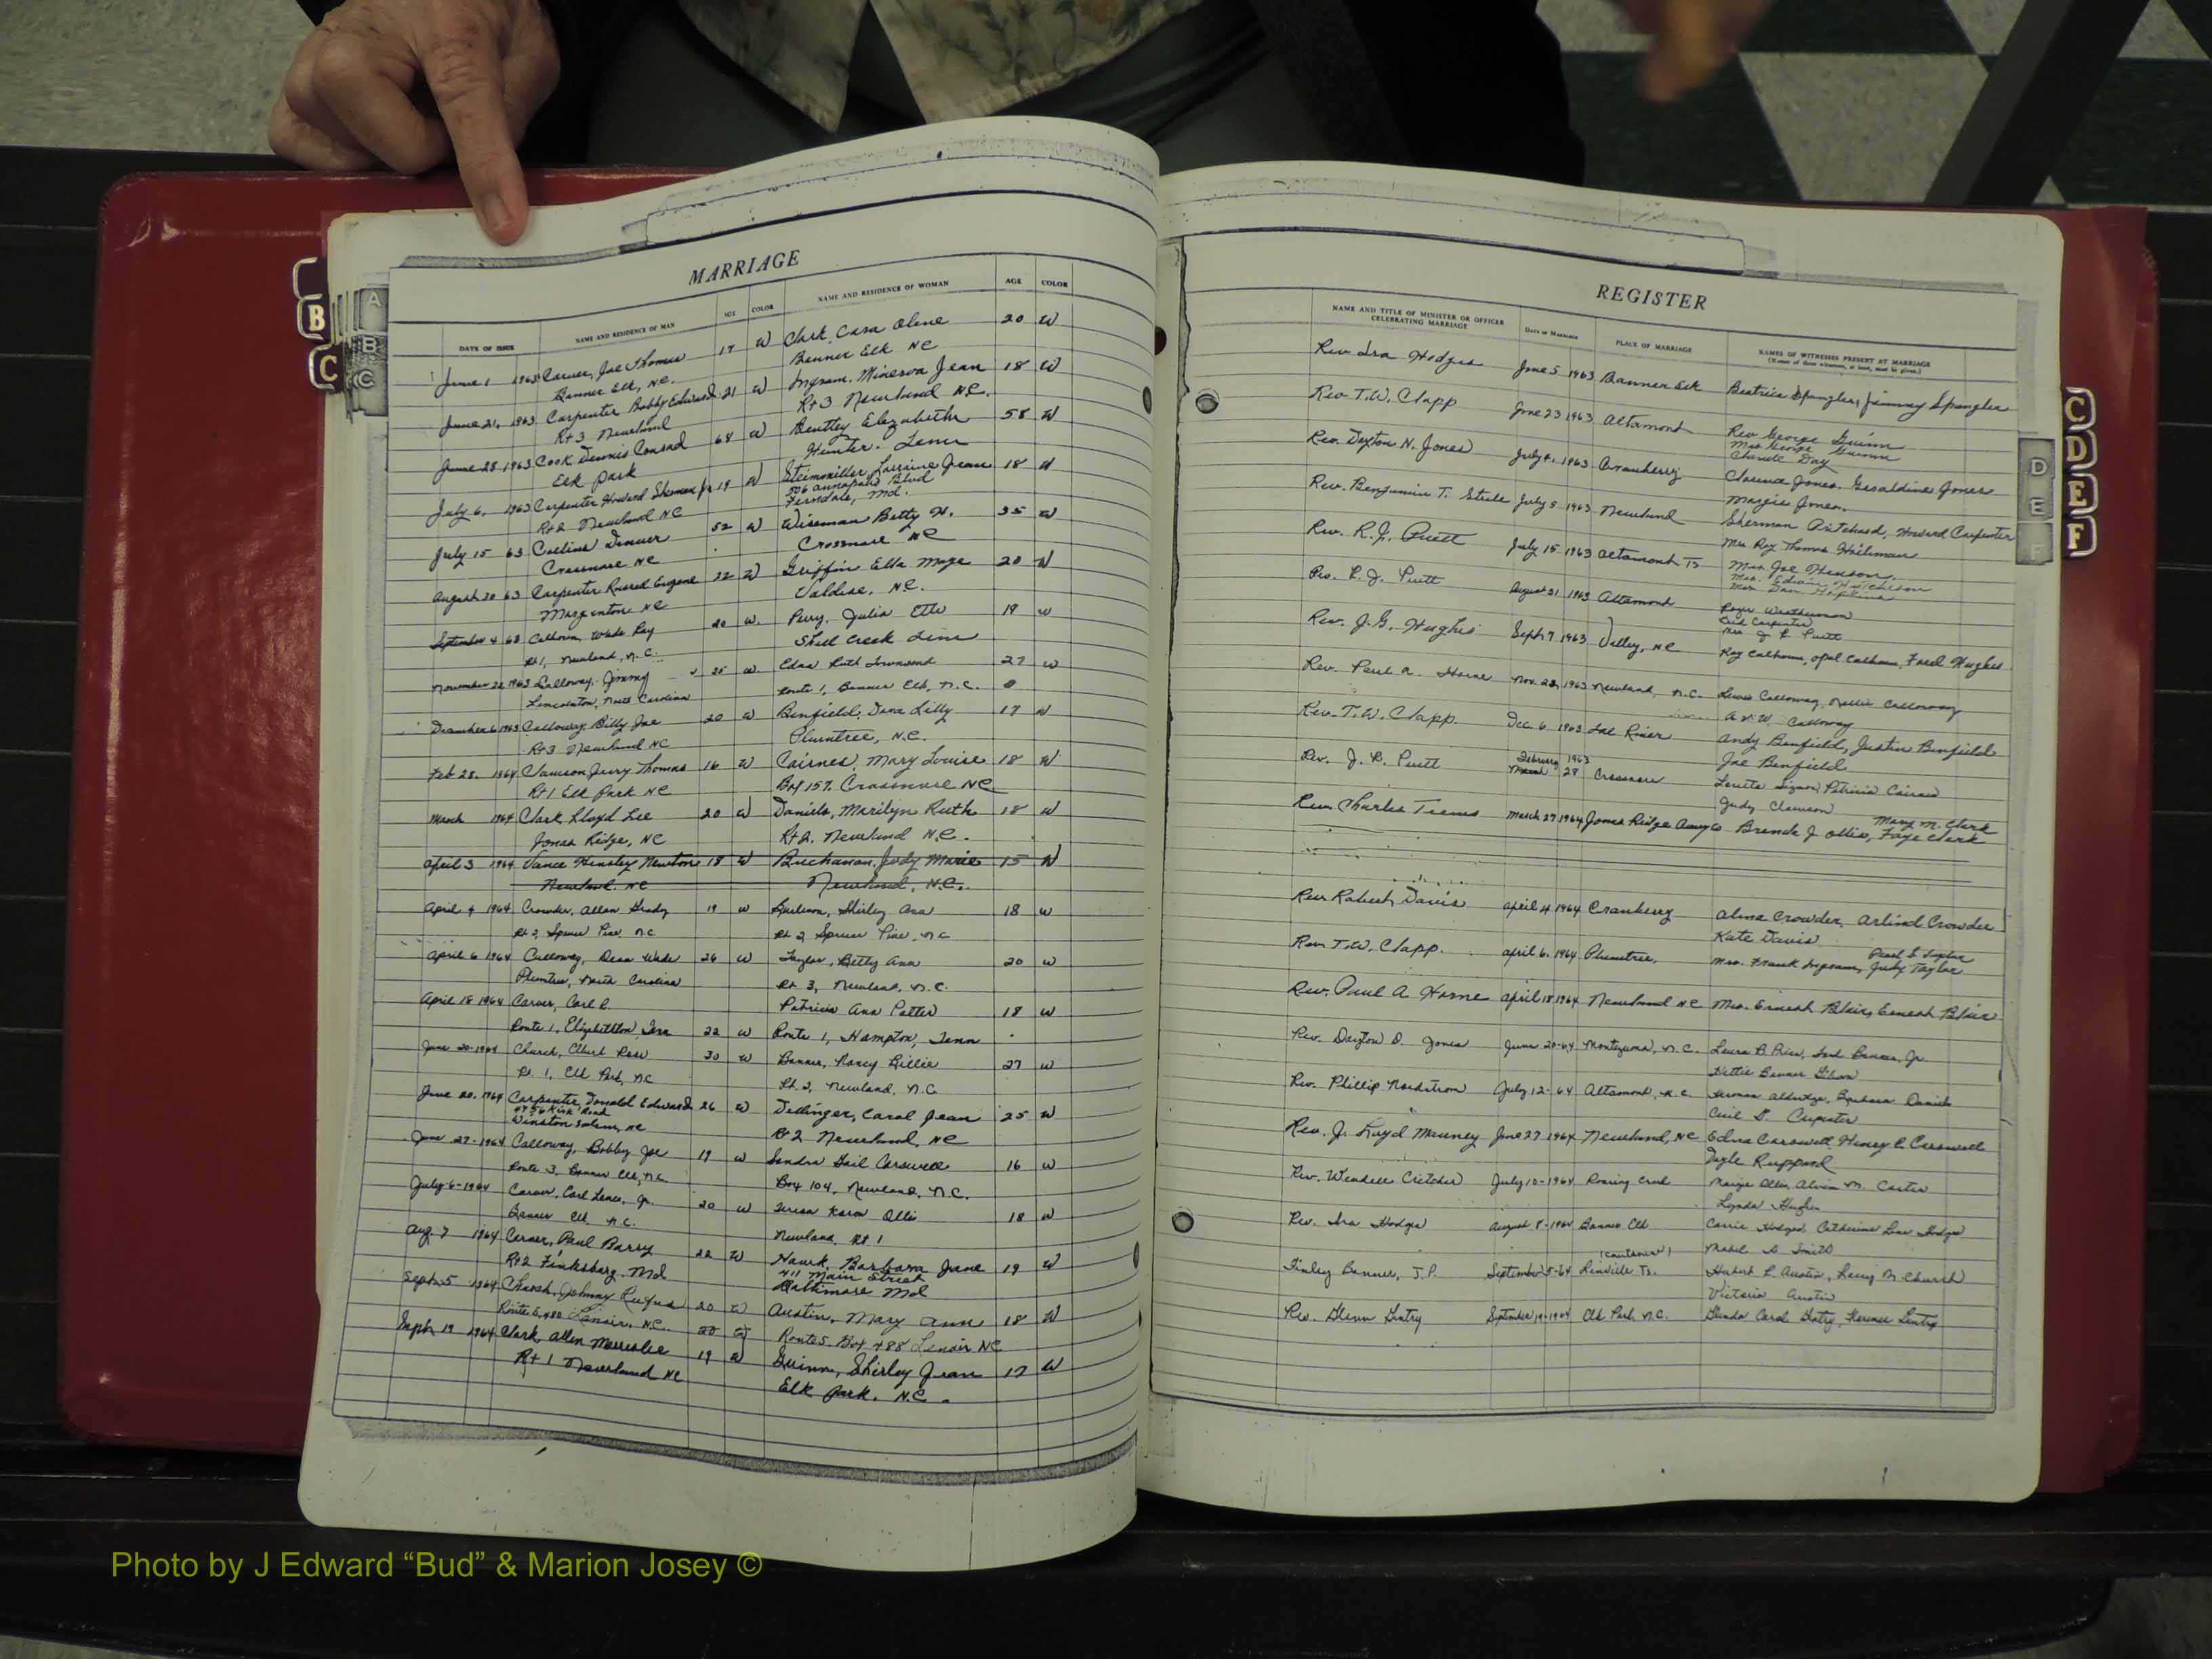 MARRIAGE
DATE OF ISSUE NAME AND RESIDENCE OF MAN AGE COLOR NAME AND RESIDENCE OF WOMAN AGE COLOR
June 1 1963 Carver, Joe Thomas 19 W Clark, Cara Oline 20 W
Banner Elk, NC. Banner Elk NC
June 21, 1963 Carpenter Bobby Edward 21 W Ingram, Minerva Jean 18 W
Rt 3 Newland Rt 3 Newland NC.
June 28 1963 Cook Dennis Conrad 68 W Bentley Elizabeth 58 W
Elk Park Hunter. Tenn
July 6, 1963 Carpenter Howard Sherman Jr 19 W Lorraine Jean 18 W
Rt 2 Newland NC 506 Annapolis Blvd
Ferndale, Md.
July 15 63 Collins Denver 52 W Wiseman Betty H. 35 W
Crossnore NC Crossnore NC
August 30 63 Carpenter Russel Eugene 22 W Griffin Ella Mage 20 W
Morganton NC Valdese, NC.
September 4 63 Calhoun, Wade Ray 20 W. Perry, Julia Etta 19 W
Rt 1, Newland, N.C. Shell Creek Tenn
November 22 1963 Calloway, Jimmy 25 W. Edna Ruth Townsend 27 W
Lincolnton, North Carolina Route 1, Banner Elk, N.C.
December 6 1963 Calloway Billy Joe 20 W Benfield, Dana Lilly 17 W
Rt 3 Newland NC Plumtree, N.C.
Feb 28, 1964 Clawson Jerry Thomas 16 W Cairnes, Mary Louise 18 W
Rt 1 Elk Park NC Box 157, Crossnore NC
March 1964 Clark Lloyd Lee 20 W Daniels, Marilyn Ruth 18 W
Jonas Ridge, NC Rt 2, Newland N.C.
April 3 1964 Vance Hensley Newton 18 W Buchanan, Judy Marie 15 W
Newland, NC Newland, N.C.
April 4 1964 Crowder, Allan Grady 19 W Burleson, Shirley Ann 18 W
Rt 2, Spruce Pine, N.C Rt 2, Spruce Pine, N.C
April 6 1964 Calloway, Dean Wade 26 W Taylor, Betty Ann 20 W
Plumtree, North Carolina Rt 3, Newland, N.C.
April 18 1964 Carver, Carl R. Patricia Ann Potter 18 W
Route 1, Elizabethton, Tenn 22 W Route 1, Hampton, Tenn
June 20-1964 Church, Elbert Ross 30 W Banner, Nancy Billie 27 W
Rt. 1, Elk Park, NC Rt. 2, Newland, N.C
June 20, 1964 Carpenter, Donald Edward 26 W Dellinger, Carol Jean 25 W
Kirk Road
Winston Salem, NC Rt 2 Newland, NC
June 27-1964 Calloway, Bobby Joe 19 W Sandra Gail Carswell 16 W
Route 3, Banner Elk, NC. Box 104, Newland, N.C.
July 6-1964 Carver, Earl Lance, Jr. 20 W Teresa Karen Ollis 18 W
Banner Elk, N.C. Newland, Rt 1
Aug. 7 1964 Carver, Paul Barry 22 W Hawk, Barbara Jane 19 W
Rt 2 Finksburg, Md 411 Main Street
Baltimore Md
Sept. 5 1964 Church, Johnny Rufus 20 W Austin, Mary Ann 18 W
Route 5, 488 Lenoir, NC. 20 W Route 5, Box 488 Lenoir NC
Sept. 19 1964 Clark, Allen 19 W Guinn, Shirley Jean 17 W
Rt 1 Newland NC Elk Park, N.C.
REGISTER
NAME AND TITLE OF MINISTER OR OFFICER CELEBRATING MARRIAGE DATE OF MARRIAGE PLACE OF MARRIAGE NAMES OF WITNESSES PRESENT AT MARRIAGE
(Names of three witnesses, at least, must be given.)
Rev Ira Hodges June 5 1963 Banner Elk Beatrice Spangler, Jimmy Spangler
Rev. T.W. Clapp June 23 1963 Altamont Rev George Guinn
Mrs George Guinn
Claude Day
Rev. Dayton N. Jones July 4, 1963 Cranberry Clarence Jones, Geraldine Jones
Margie Jones.
Rev. Benjamin T. Steele July 5 1963 Newland Sherman Pritchard, Howard Carpenter
Mrs Roy Thomas Hickman
Rev. R.J. Pruett July 15 1963 Altamont Ts Mrs. Joe Henson
Mrs. Edwin Hutcheson
Mrs Dan Hopkins
Rev. R. J. Pruett August 31 1963 Altamont Roger Weatherman
Reid Carpenter
Mrs R. J. Pruett
Rev. J.G. Hughes Sept 7 1963 Valley, NC Ray Calhoun, Opal Calhoun, Fred Hughes
Rev. Paul A. Horne Nov. 28, 1963 Newland, N.C. Lewis Calloway, Nellie Calloway
Calloway
Rev. T.W. Clapp. Dec. 6 1963 Toe River Andy Benfield, Justin Benfield
Joe Benfield
Rev. J. R. Pruett February 1963
March 28 Crossnore Loretta Sigmon, Patricia Cairnes
Judy Clawson
Rev. Charles Teams March 27 1964 Jonas Ridge Avery Co Brenda J Ollis, Faye Clark
Mary M. Clark
Rev Robert Davis April 4 1964 Cranberry Alma Crowder, Arlind Crowder
Kate Davis
Rev. T.W. Clapp. April 6, 1964 Plumtree, Mrs. Frank Ingram, Judy Taylor
Pearl S Taylor
Rev. Paul A Horne April 18 1964 Newland NC Mrs. Ernest Blair, Ernest Blair
Rev. Dayton D. Jones June 20-64 Montezuma, N.C. Laura B. Price, Ted Banner, Jr.
Hettie Banner Gibson
Rev. Phillip Nordstrom July 12-64 Altamont, N.C. Herman Aldridge, Barbara Daniels
Cecil D. Carpenter
Rev. J. Loyd Mauney June 27 1964 Newland, NC Edna Carswell Henry C. Carswell
Doyle Ruppard
Rev. Wendell Critcher July 10-1964 Roaring Creek Margie Ollis, Alvin M. Carter
Lynda Hughes
Rev. Ira Hodges August 8-1964 Banner Elk Carrie Hodges, Catherine Hodges
Mabel S. Smith
Finley Banner, J.P. September 5-64 Linville Ts. Hubert P. Austin, Larry M. Church
Victoria Austin
Rev. Glenn Gentry September 19-1964 Elk Park, N.C. Glenda Carol Gentry, Florence Gentry
A
B
C
B
C
D
E
F
C
D
E
F
Photo by J Edward “Bud” & Marion Josey ©